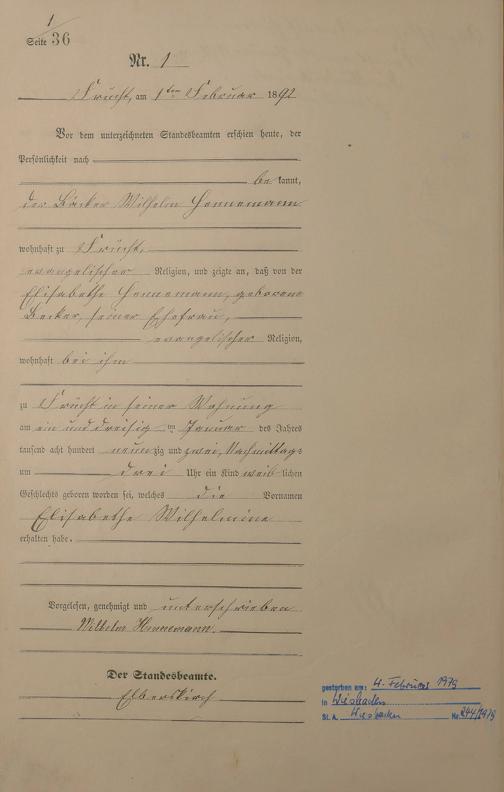 1
Seite 36
Nr. 1
Frücht, am 1ten Februar 1892
Vor dem unterzeichneten Standesbeamten erschien heute, der
Persönlichkeit nach
bekannt,
der Bäcker Wilhelm Hennemann
wohnhaft zu Frücht,
evangelischer Religion, und zeigte an, daß von der
Elisabethe Hennemann, geborene
Becker, seiner Ehefrau,
evangelischer Religion,
wohnhaft bei ihm
zu Frücht in seiner Wohnung
am ein und dreisig ten Januar des Jahres
tausend acht hundert neunzig und zwei, Nachmittags
um drei Uhr ein Kind weiblichen
Geschlechts geboren worden sei, welches die Vornamen
Elisabethe Wilhelmine
erhalten habe.
Vorgelesen, genehmigt und unterschrieben
Wilhelm Hennemann.
Der Standesbeamte.
Elberskirch
gestorben am: 4. Februar 1979
in Wiesbaden
St. A. Wiesbaden Nr. 244/1979